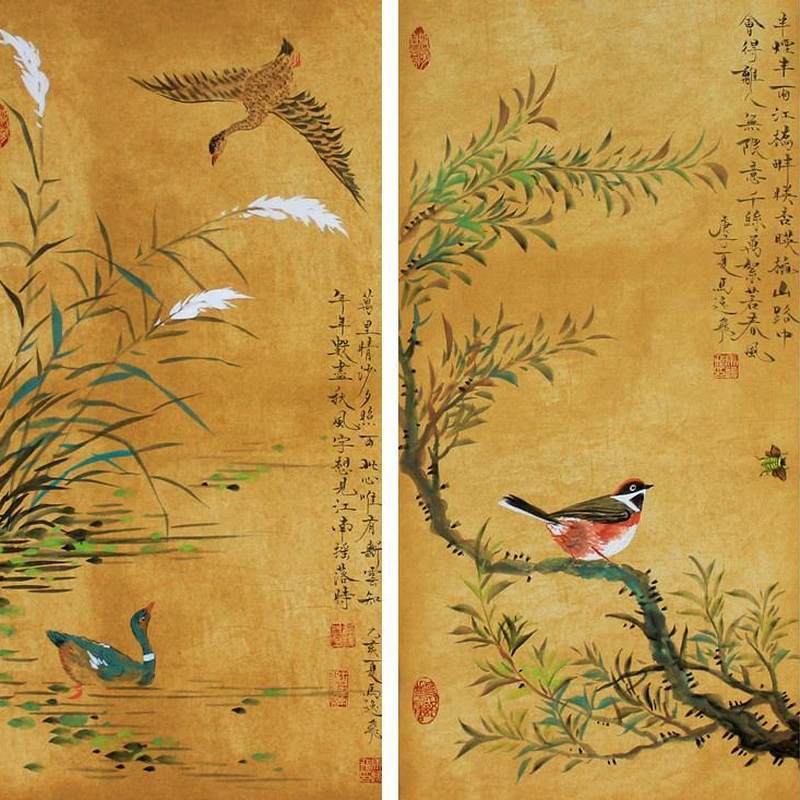 萬里晴沙夕照西此心唯有斷雲知
年年數盡秋風字想見江南摇落時
乙亥夏馬逸飛
半煙半雨江橋畔映杏映桃山路中
會得離人無限意千絲萬絮惹春風
夏馬逸飛